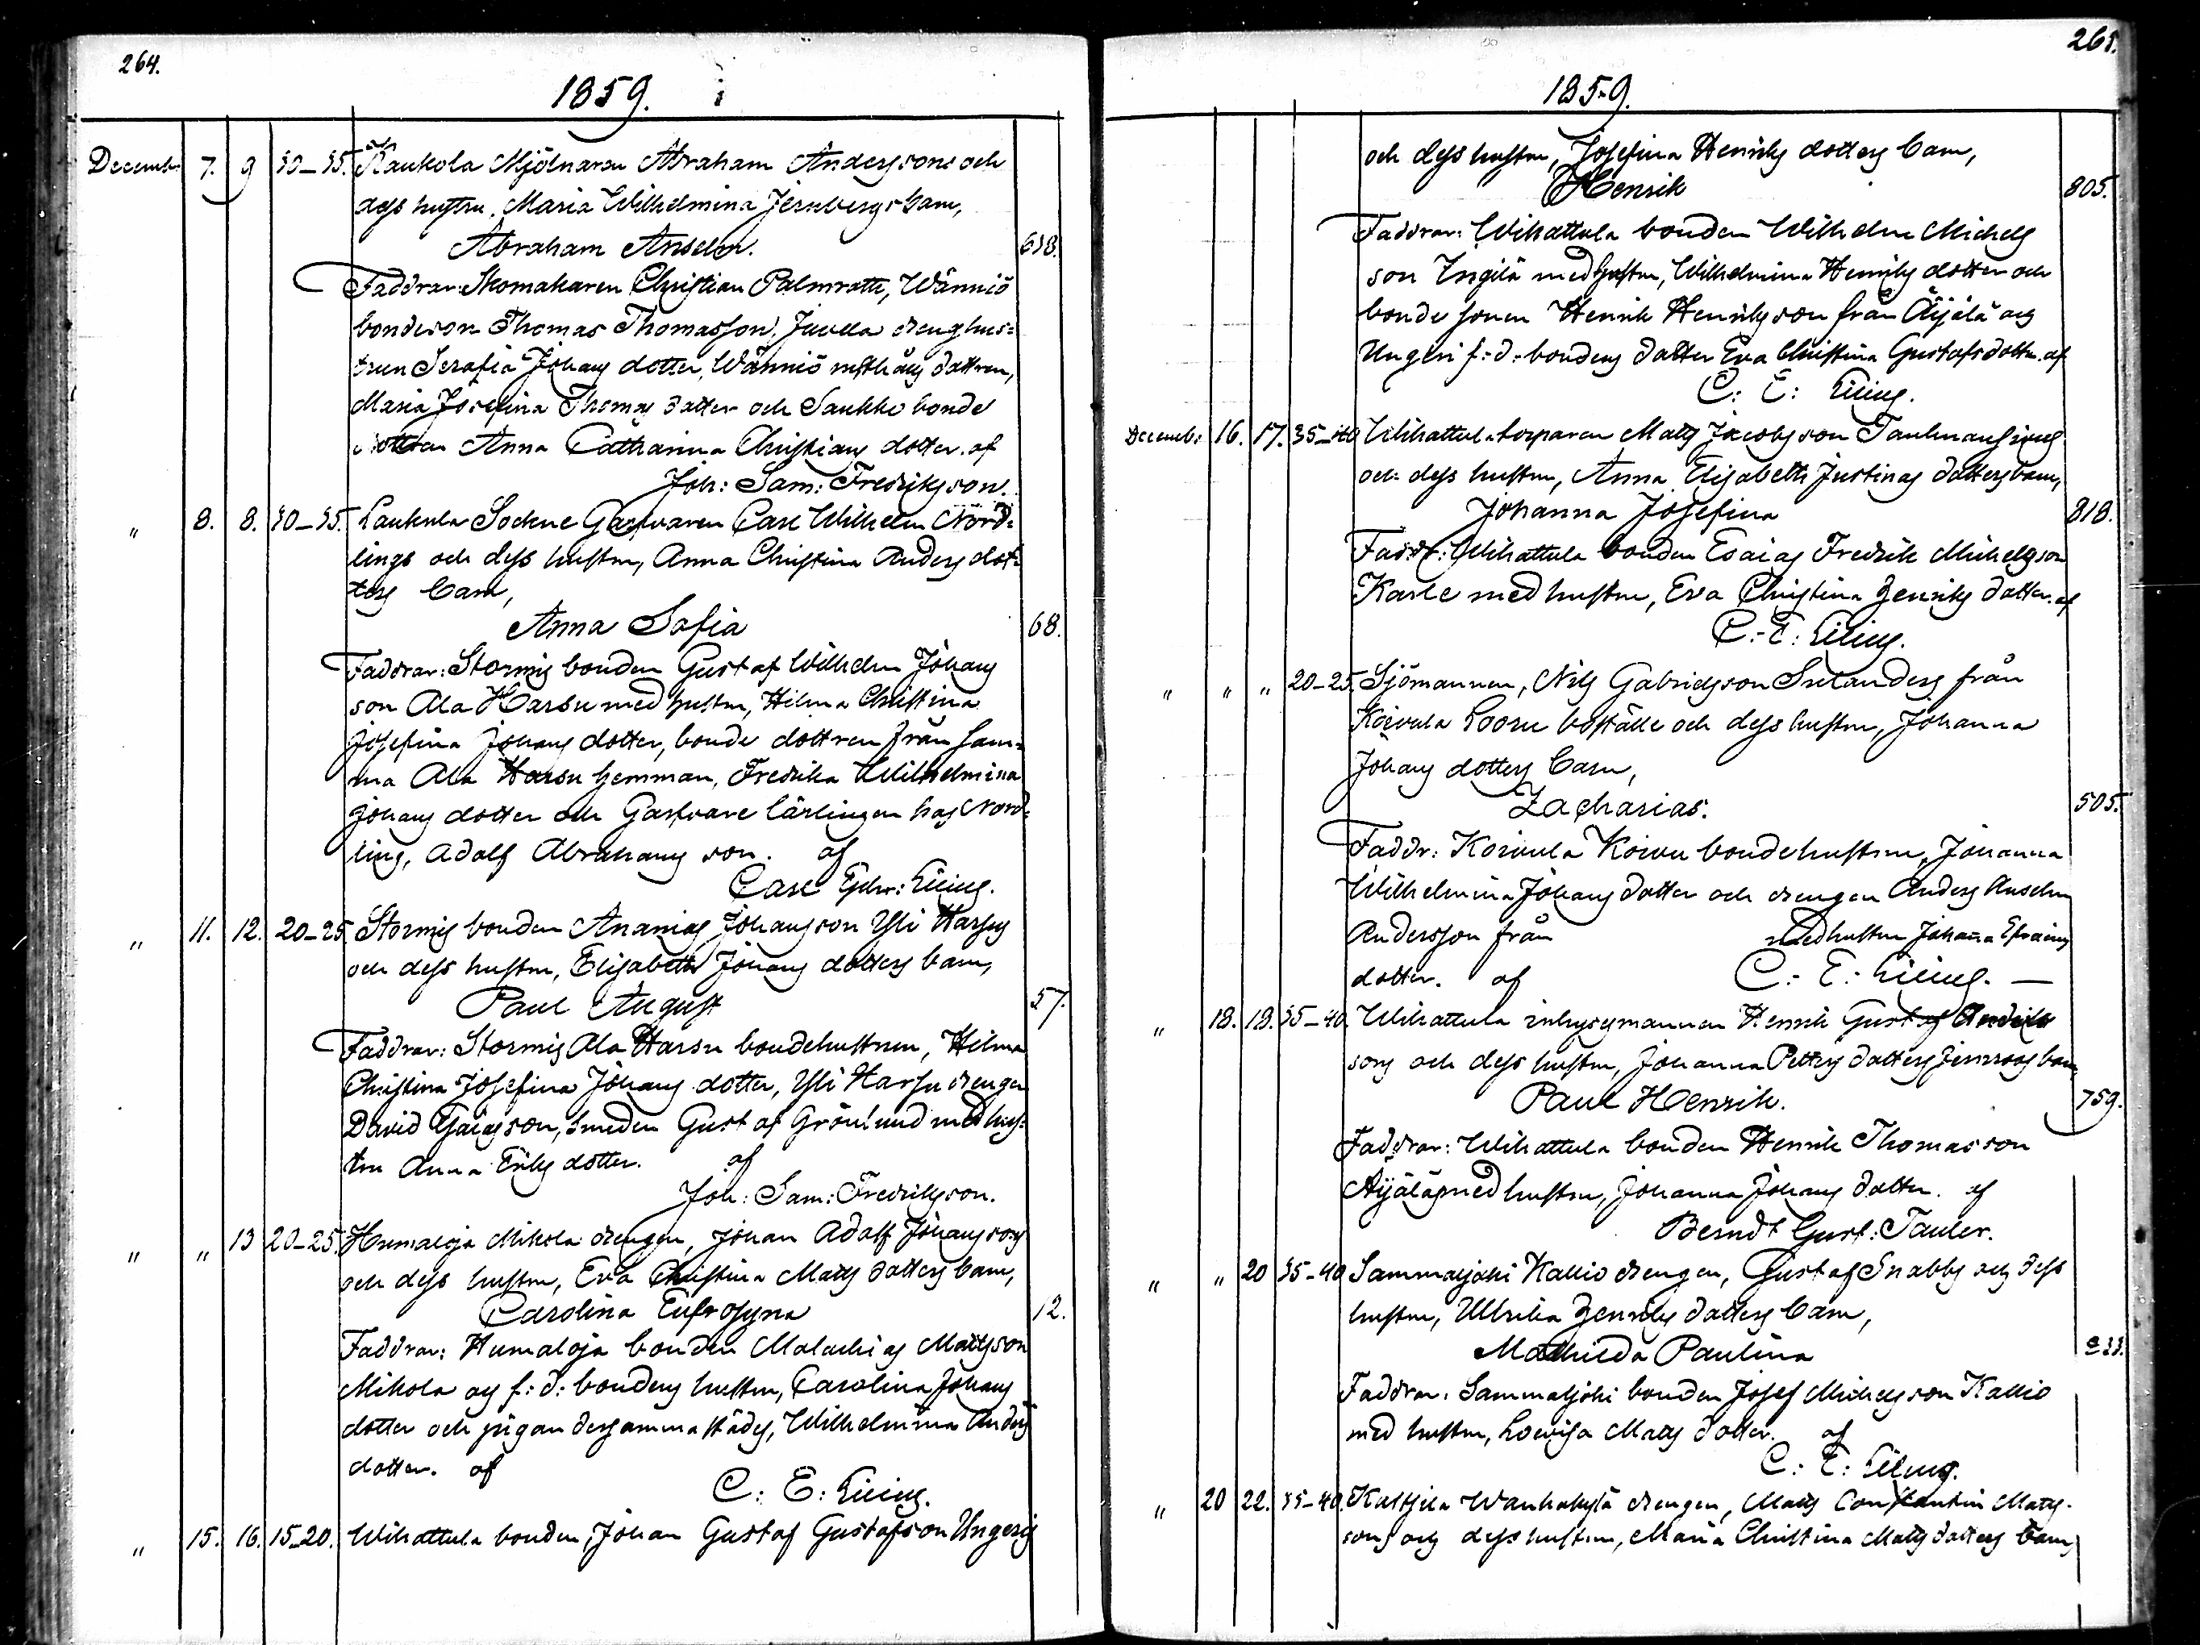 264.
1859.
December 7. 9 30-35. Kaukola Mjölnaren Abraham Anderssons och
dess hustru, Maria Wilhelmina Jernbergs barn,
Abraham Anselm. 638.
Faddrar: Skomakaren Christian Palmroth, Wänniö
bondeson Thomas Thomasson, Juvela drenghus=
trun Serafia Johans dotter, Wänniö
Maria Josefina Thomas dotter och Saukko bonde
dottren Anna Catharina Christians dotter. af
Joh: Sam: Fredriksson.
" 8. 8. 30-35. Laukula Sockne Garfvaren Carl Wilhelm Nord=
lings och dess hustru, Anna Christina Anders dot=
ters barn,
Anna Sofia 68.
Faddrar: Stormis bonden Gustaf Wilhelm Johans
son Ala Harsu med hustru, Hilma Christina
Josefina Johans dotter, bonde dottren från sam=
ma Ala Harsu hemman, Fredrika Wilhelmina
Johans dotter och Garfvare lärlingen hos Nord=
ling, Adolf Abrahams son. af
Carl Edv: Lilius.
" 11. 12. 20-25 Stormis bonden Ananias Johansson Yli Harsus
och dess hustru, Elisabeth Johans dotters barn,
Paul August 57.
Faddrar: Stormis Ala Harsu bondehustrun, Hilma
Christina Josefina Johans dotter, Yli Harsu drengen
David Esaiasson, Smeden Gustaf Grönlund med hus=
tru Anna Eriks dotter. af
Joh: Sam: Fredriksson.
" " 13 20-25. Humaloja Mikola drengen, Johan Adolf Johanssons
och dess hustru, Eva Christina Matts dotters barn,
Carolina Eufrosyna 12.
Faddrar: Humaloja bonden Malachias Mattsson
Mikola och f: d: bondens hustru, Carolina Johans
dotter och pigan dersammastädes, Wilhelmina Anders
dotter. af
C: E: Lilius.
" 15. 16. 15-20. Wihattula bonden, Johan Gustaf Gustafsson Ungeris
265.
1859.
och dess hustru, Josefina Henriks dotters barn,
Henrik 805.
Faddrar: Wihattula bonden Wilhelm Michels
son Yngilä med hustru, Wilhelmina Henriks dotter och
bonde sonen Henrik Henriksson från Äijälä och
Ungeri f: d: bondens dotter Eva Christina Gustafsdotter. af
C: E: Lilius.
Decemb: 16. 17. 35-40 Wihattula torparen Matts Jacobsson
och dess hustru, Anna Elisabeth Justinas dotters barn,
Johanna Josefina 818.
Faddr: Wihattula bonden Esaias Fredrik Michelsson
Karle med hustru, Eva Christina Henriks dotter. af
C: E: Lilius.
" " " 20-25. Sjömannen, Nils Gabrielsson Selanders från
Koivula Looru boställe och dess hustru, Johanna
Johans dotters barn,
Zacharias. 505.
Faddr: Koivula Koivu bondehustrun, Johanna
Wilhelmina Johans dotter och drengen Anders Anselm
Andersson från med hustru Johanna Efraims
dotter. af C: E: Lilius. —
" 18. 18. 35-40. Wihattula inhysesmannen Henrik Gustaf
sons och dess hustru, Johanna Petters dotters barn
Paul Henrik. 759.
Faddrar: Wihattula bonden Henrik Thomasson
Äijälä med hustru, Johanna Johans dotter. af
Berndt Gust: Tauler.
" " 20 35-40 Sammaljoki Kallio drengen, Gustaf Snabbs och dess
hustru, Ullrika Henriks dotters barn,
Mathilda Paulina
Faddrar: Sammaljoki bonden Josef Michelsson Kallio
med hustru, Lovisa Matts dotter. af
C: E: Lilius.
" 20 22. 35-40. Kaltsila Wanhakylä drengen, Matts Constantin Mats-
sons och dess hustru, Maria Christina Matts dotters barn,